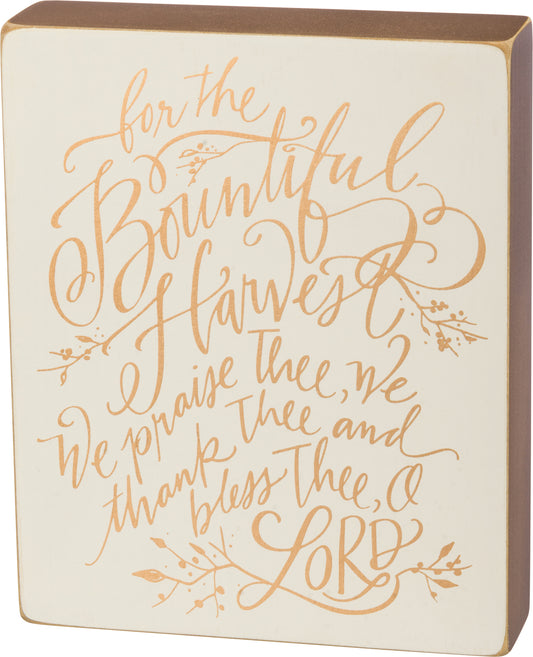 for the
Bountiful
Harvest
We praise Thee, We
thank Thee and
bless Thee, O
LORD